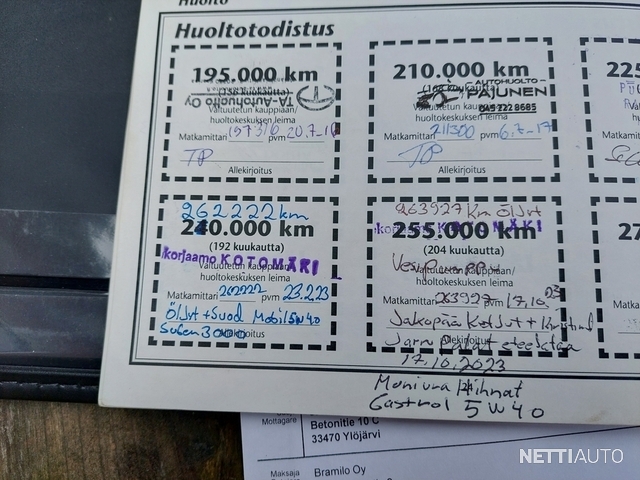 Huolto
Huoltotodistus
195.000 km
TA-Autohuolto Oy
Valtuutetun kauppiaan/
huoltokeskuksen leima
Matkamittari 197376 pvm
TP
Allekirjoitus
210.000 km
AUTOHUOLTO
PAJUNEN
045 222 8685
Valtuutetun kauppiaan/
huoltokeskuksen leima
Matkamittari 211300 pvm 6.7-17
TP
Allekirjoitus
225
262222 km
240.000 km
(192 kuukautta)
korjaamo KOTOMÄKI
Valtuutetun kauppiaan/
huoltokeskuksen leima
Matkamittari 262222 pvm 23.2.23
Öljyt + Suod Mobil 5W40
3000
263927 km Öljyt
255.000 km
(204 kuukautta)
huoltokeskuksen leima
Matkamittari 263927 pvm 17.10.23
Jakopää Ketjut +
Jarru Palat eteen
Allekirjoitus
17.10.2023
Moniura Hihnat
Castrol 5W40
27
Mottagare
Betonitie 10 C
33470 Ylöjärvi
Maksaja
Bramilo Oy
NETTIAUTO